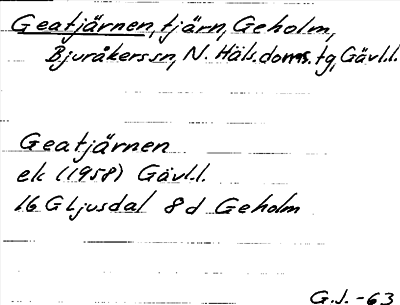 Geatjärnen, tjärn, Geholm,
Bjuråkerssn, N. Häls.doms.tg, Gävl.l.
Geatjärnen
ek (1958) Gävl.l.
16 G Ljusdal 8 d Geholm
G.J. -63